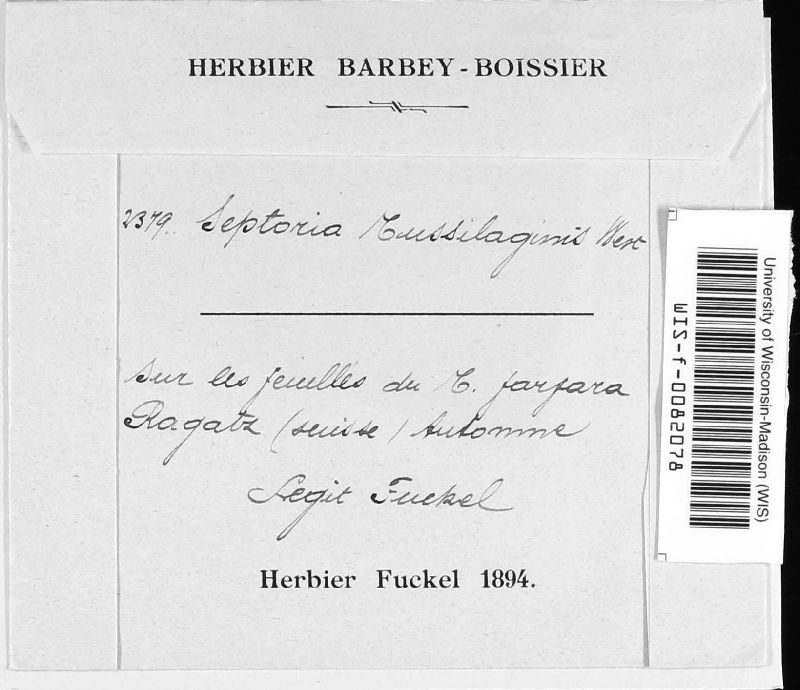 HERBIER BARBEY-BOISSIER
2379. Septoria Tussilaginis West
Sur les feuilles du T. farfara
Ragatz (suisse) Automne
Legit Fuckel
Herbier Fuckel 1894.
University of Wisconsin-Madison (WIS)
WIS-f-0082078